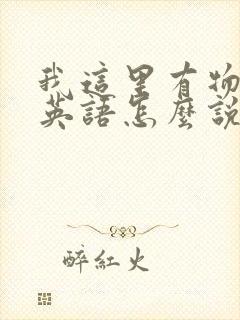 我這里有物
英語怎麼說
醉紅火